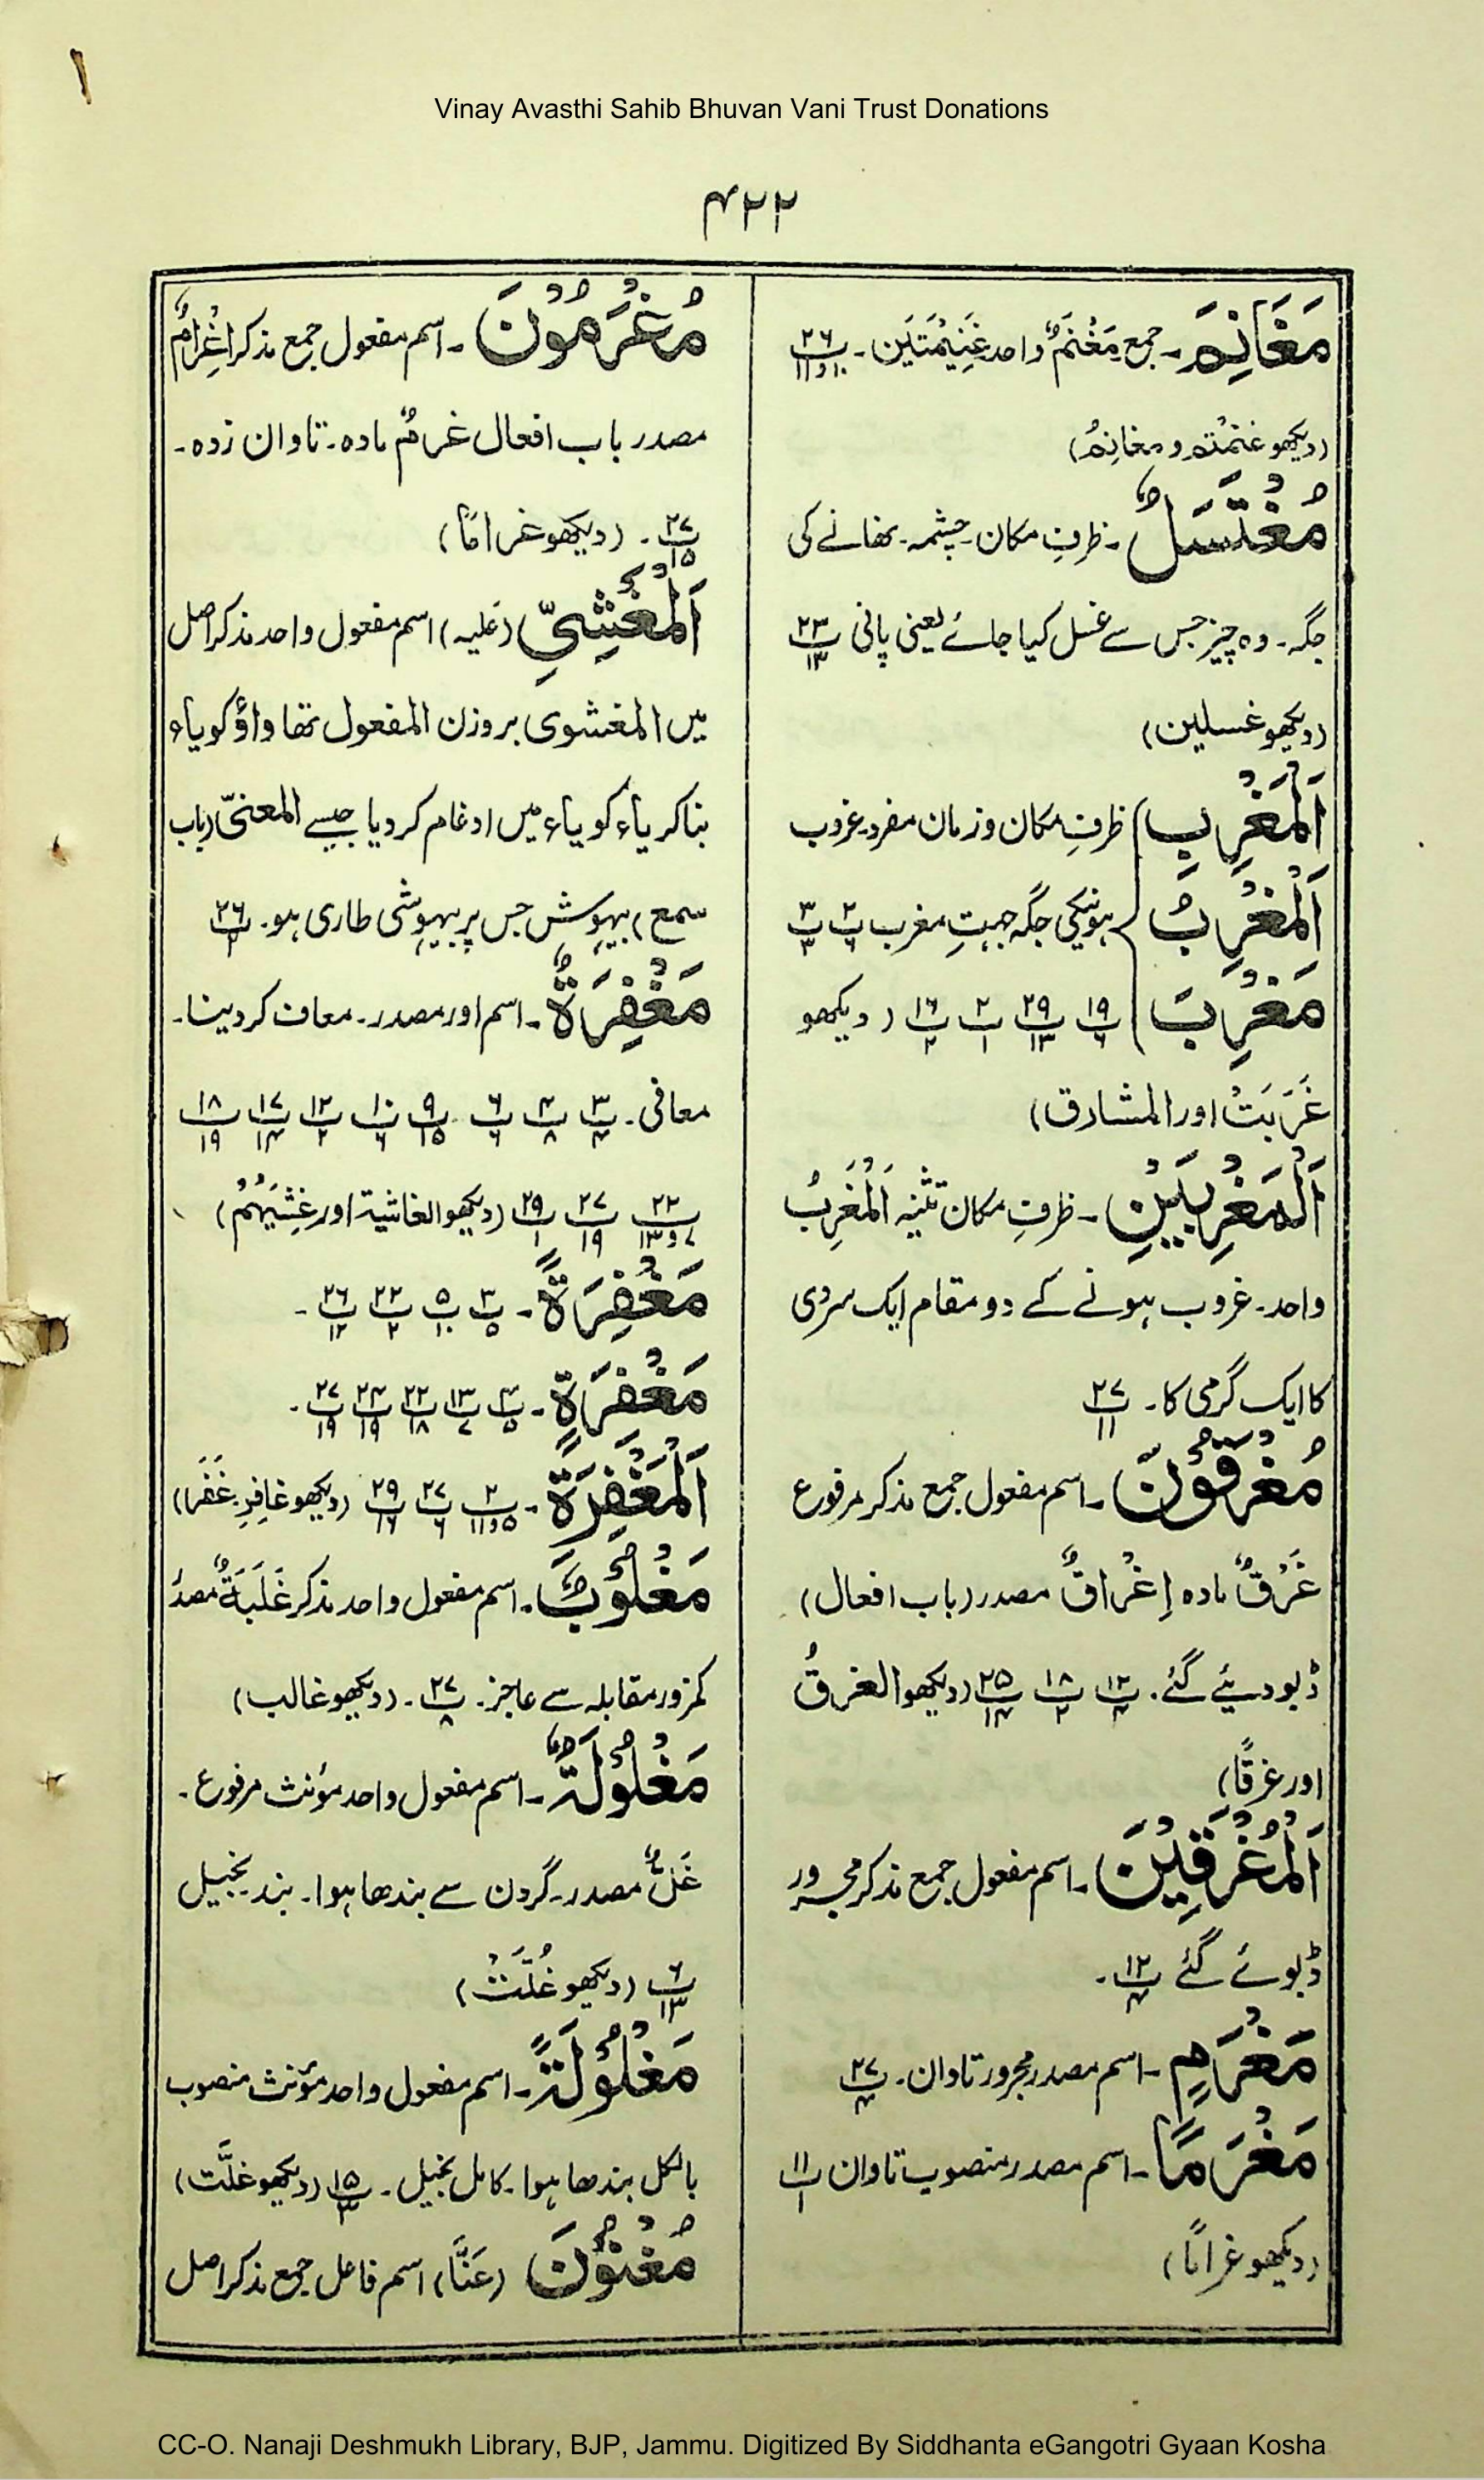 Vinay Avasthi Sahib Bhuvan Vani Trust Donations
۴۲۲
مَغَانِمَ۔ جمع مَغْنَمٌ واحد غَنِیْمَتَیں۔ ۲۶ پ ۱۰و۱۱
(دیکھو غَنِمْتُم و مغانِمُ)
مُغْتَسَلٌ۔ ظرفِ مکان۔ چشمہ۔ نھانے کی
جگہ۔ وہ چیز جس سے غسل کیا جائے یعنی پانی ۲۳ پ ۱۳
(دیکھو غسلین)
اَلْمَغْرِبِ } ظرفِ مکان و زمان مفرد۔ غروب
اَلْمَغْرِبُ } ہونیکی جگہ جہتِ مغرب ۲ پ ۶ ۳ پ ۳
مَغْرِبَ } ۱۹ پ ۶ ۲۹ پ ۱۳ ۲ پ ۱ ۱۶ پ ۲ (دیکھو
غَرَبَتْ اور المشارق)
اَلْمَغْرِبَیْنِ۔ ظرفِ مکان تثنیہ اَلْمَغْرِبُ
واحد۔ غروب ہونے کے دو مقام ایک سردی
کا ایک گرمی کا۔ ۲۷ پ ۱۱
مُغْرَقُوْنَ۔ اسم مفعول جمع مذکر مرفوع
غَرَقٌ مادہ اِغْرَاقٌ مصدر (باب افعال)
ڈبو دیئے گئے۔ ۱۲ پ ۴ ۱۸ پ ۲ ۲۵ پ ۱۴ (دیکھو الغرقُ
اور غرقًا)
اَلْمُغْرَقِیْنَ۔ اسم مفعول جمع مذکر مجرور
ڈبوئے گئے ۱۲ پ ۴۔
مَغْرَمٍ۔ اسم مصدر مجرور تاوان۔ ۲۷ پ ۴
مَغْرَمًا۔ اسم مصدر منصوب تاوان ۱۱ پ ۱
(دیکھو غرامًا)
مُغْرَمُوْنَ۔ اسم مفعول جمع مذکر اِغْرَامٌ
مصدر باب افعال غرمٌ مادہ۔ تاوان زدہ۔
۲۷ پ ۱۵۔ (دیکھو غرامًا)
اَلْمَغْشِیِّ (عَلیہ) اسم مفعول واحد مذکر اصل
میں المغشوی بروزن المفعول تھا واؤ کو یاء
بنا کر یاء کو یاء میں ادغام کر دیا جیسے المعنیّ (باب
سمع) بیہوش جس پر بیہوشی طاری ہو۔ ۲۶ پ
مَغْفِرَةٌ۔ اسم اور مصدر۔ معاف کر دینا۔
معافی۔ ۳ پ ۴ ۴ پ ۸ ۶ پ ۶ ۹ پ ۱۵ ۱۰ پ ۶ ۱۲ پ ۲ ۱۷ پ ۱۴ ۱۸ پ ۱۹
۲۲ پ ۷و۱۳ ۲۷ پ ۱۹ ۲۹ پ ۱ (دیکھو الغاشیة اور غَشِیَهُمْ)
مَغْفِرَةً۔ ۳ پ ۵ ۵ پ ۱۰ ۲۲ پ ۲ ۲۶ پ ۱۲۔
مَغْفِرَةٍ۔ ۴ پ ۵ ۱۳ پ ۷ ۲۲ پ ۱۸ ۲۴ پ ۱۹ ۲۷ پ ۱۹۔
اَلْمَغْفِرَةِ۔ ۲ پ ۵و۱۱ ۲۷ پ ۶ ۲۹ پ ۱۶ (دیکھو غَافِرِ۔ غَفَرَ)
مَغْلُوْبٌ۔ اسم مفعول واحد مذکر غَلَبَةٌ مصدر
کمزور مقابلہ سے عاجز۔ ۲۷ پ ۸۔ (دیکھو غالب)
مَغْلُوْلَةٌ۔ اسم مفعول واحد مؤنث مرفوع۔
غَلٌّ مصدر۔ گردن سے بندھا ہوا۔ بند بخیل
۶ پ ۱۳ (دیکھو غُلَّتْ)
مَغْلُوْلَةً۔ اسم مفعول واحد مؤنث منصوب
بالکل بندھا ہوا۔ کامل بخیل۔ ۱۵ پ ۳ (دیکھو غلَّت)
مُغْنُوْنَ (عَنَّا) اسم فاعل جمع مذکر اصل
CC-O. Nanaji Deshmukh Library, BJP, Jammu. Digitized By Siddhanta eGangotri Gyaan Kosha